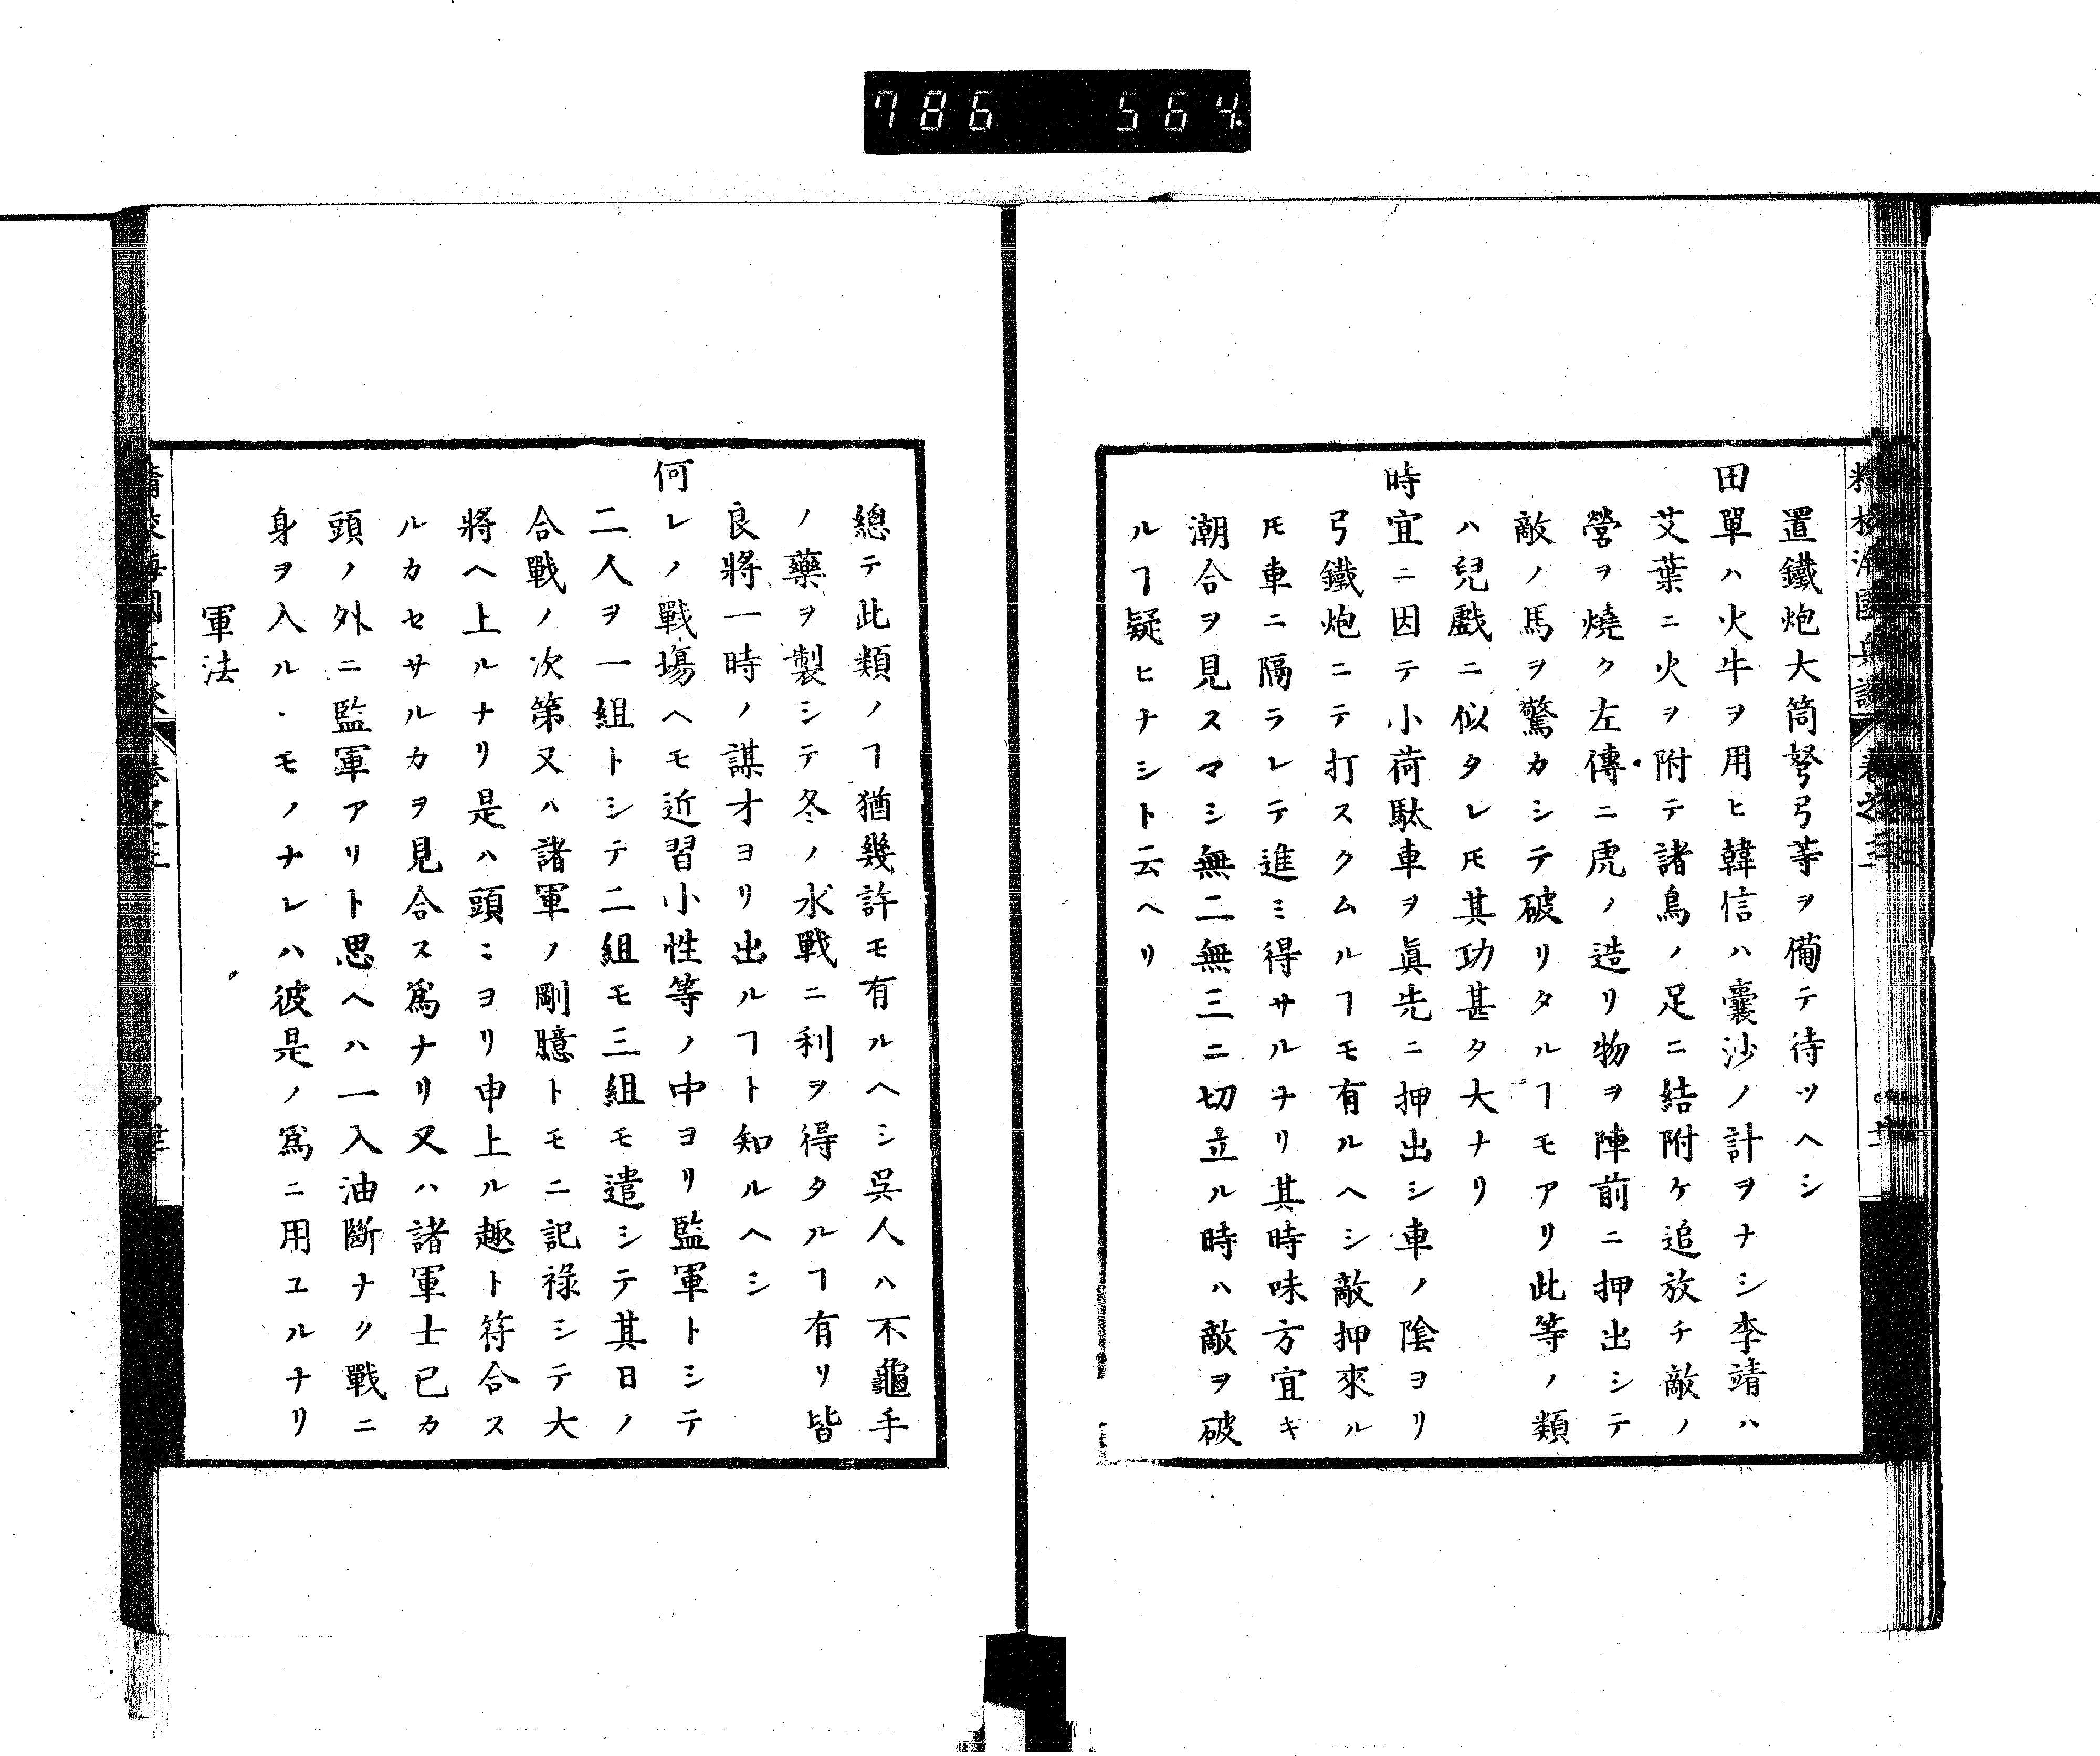 786 564.
置鐵炮大筒弩弓等ヲ備テ待ツヘシ
田單ハ火牛ヲ用ヒ韓信ハ囊沙ノ計ヲナシ李靖ハ
艾葉ニ火ヲ附テ諸鳥ノ足ニ結附ケ追放チ敵ノ
營ヲ燒ク左傳ニ虎ノ造リ物ヲ陣前ニ押出シテ
敵ノ馬ヲ驚カシテ破リタルヿモアリ此等ノ類
ハ兒戲ニ似タレ𪜈其功甚タ大ナリ
時宜ニ因テ小荷駄車ヲ眞先ニ押出シ車ノ陰ヨリ
弓鐵炮ニテ打スクムルヿモ有ルヘシ敵押來ル
𪜈車ニ隔ラレテ進ミ得サルナリ其時味方宜キ
潮合ヲ見スマシ無二無三ニ切立ル時ハ敵ヲ破
ルヿ疑ヒナシト云ヘリ
總テ此類ノヿ猶幾許モ有ルヘシ吳人ハ不龜手
ノ藥ヲ製シテ冬ノ水戰ニ利ヲ得タルヿ有リ皆
良將一時ノ謀才ヨリ出ルヿト知ルヘシ
何レノ戰塲ヘモ近習小性等ノ中ヨリ監軍トシテ
二人ヲ一組トシテ二組モ三組モ遣シテ其日ノ
合戰ノ次第又ハ諸軍ノ剛臆トモニ記祿シテ大
將ヘ上ルナリ是ハ頭ミヨリ申上ル趣ト符合ス
ルカセサルカヲ見合ス爲ナリ又ハ諸軍士已カ
頭ノ外ニ監軍アリト思ヘハ一入油斷ナク戰ニ
身ヲ入ル・モノナレハ彼是ノ爲ニ用ユルナリ
軍法